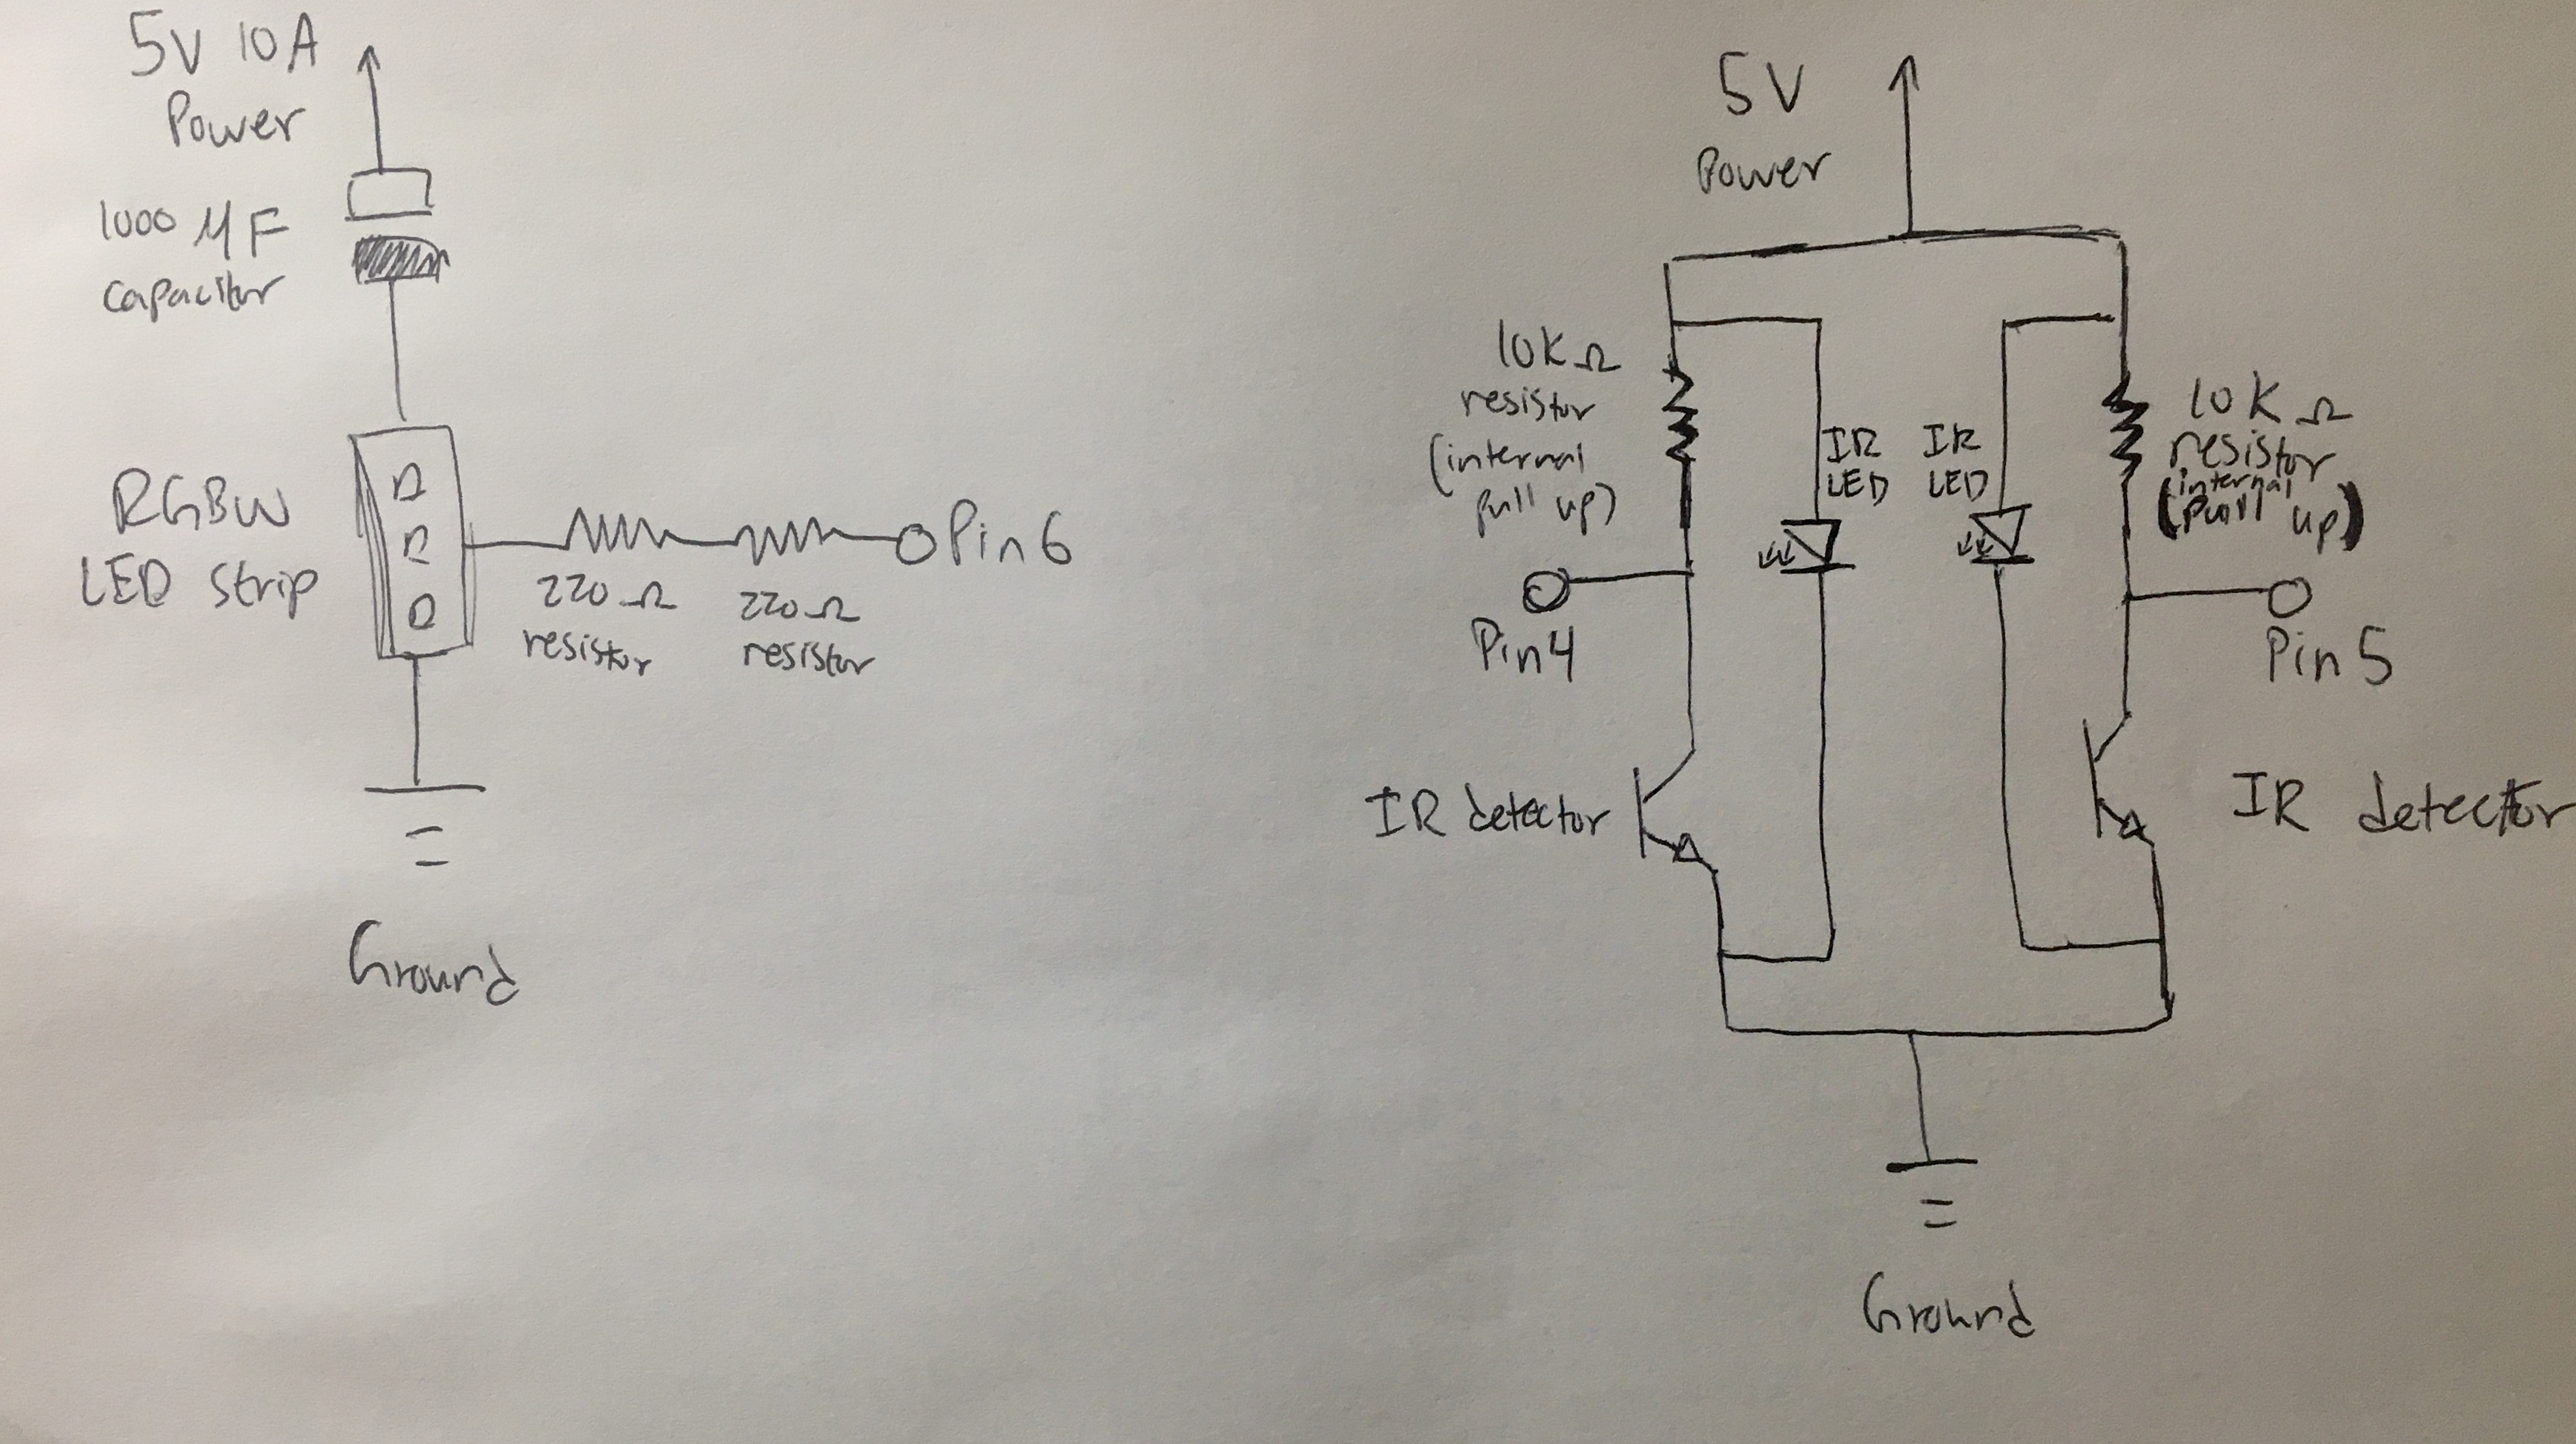 5V 10A
Power
1000 µF
capacitor
RGBW
LED strip
220 Ω
resistor
220 Ω
resistor
Pin 6
Ground
5V
Power
10K Ω
resistor
(internal
pull up)
IR
LED
IR
LED
10K Ω
resistor
(internal
pull up)
Pin 4
Pin 5
IR detector
IR detector
Ground